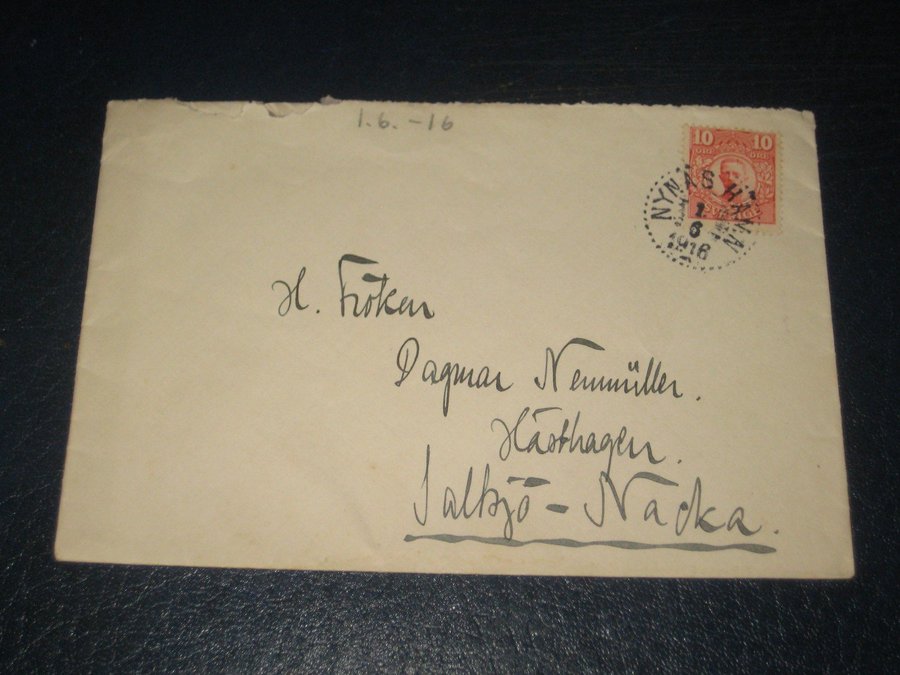 1.6.-16
10 10
ÖRE ÖRE
NYNÄSHAMN
1
6
1916
H. Fröken
Dagmar Neumüller.
Hästhagen.
Saltsjö-Nacka.